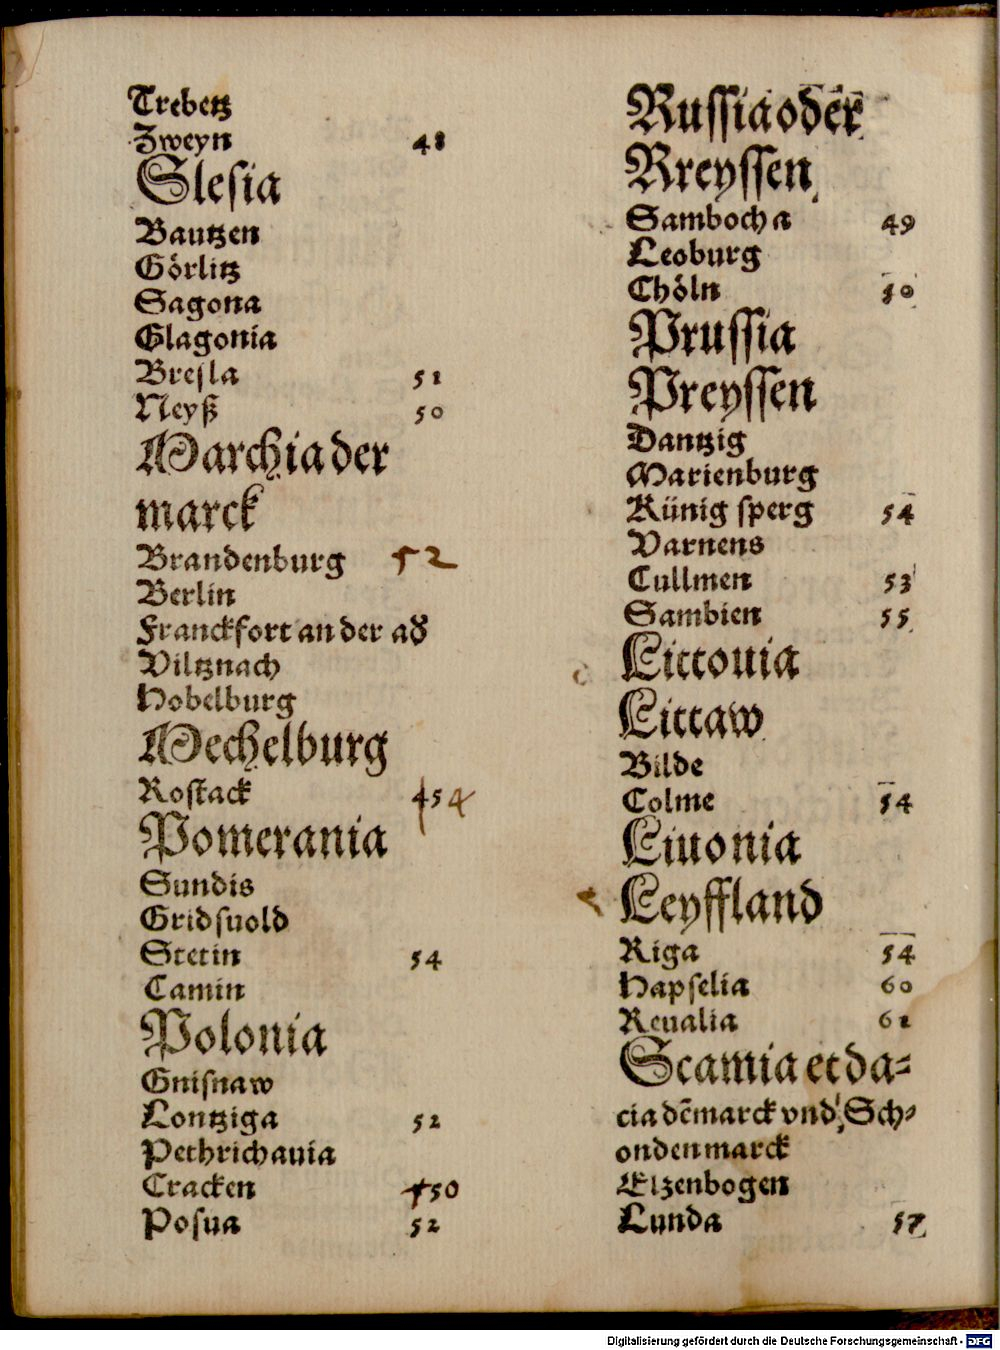 Trebetz
Zweyn 48
Slesia
Bautzen
Görlitz
Sagona
Glagonia
Bresla 51
Neyß 50
Marchia der
marck
Brandenburg 52
Berlin
Franckfort an der ad
Viltznach
Hobelburg
Mechelburg
Rostack 54
Pomerania
Sundis
Gridsuold
Stetin 54
Camin
Polonia
Gnisnaw
Lontziga 52
Pethrichauia
Cracken 50
Posua 52
Russia oder
Rreyssen
Sambocha 49
Leoburg
Chöln 50
Prussia
Preyssen
Dantzig
Marienburg
Künig sperg 54
Varnens
Cullmen 53
Sambien 55
Littouia
Littaw
Bilde
Colme 54
Liuonia
Leyffland
Riga 54
Hapselia 60
Reualia 61
Scamia et da-
cia dēmarck vnd Sch-
ondenmarck
Elzenbogen
Lunda 57
Digitalisierung gefördert durch die Deutsche Forschungsgemeinschaft - DFG